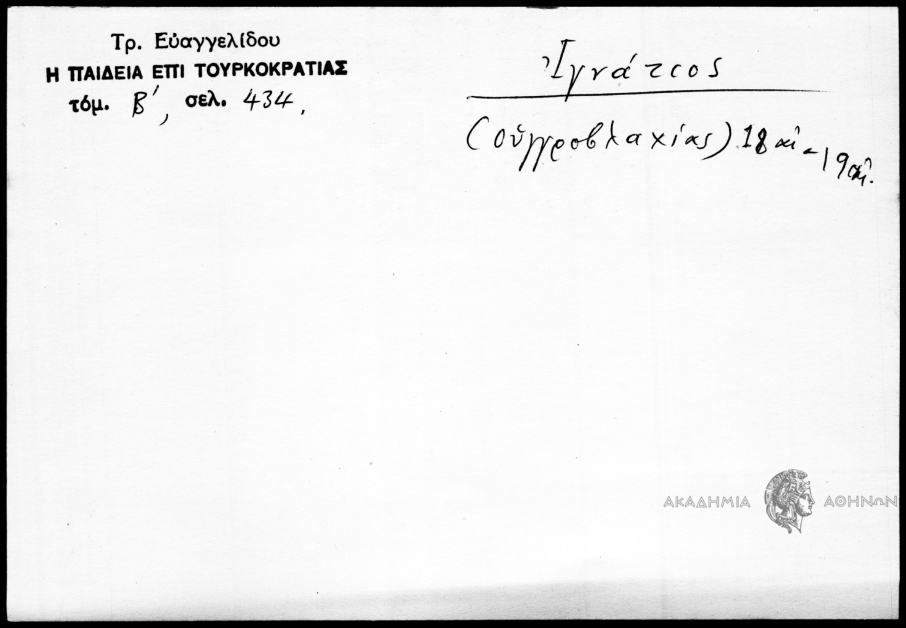 Τρ. Εὐαγγελίδου
Η ΠΑΙΔΕΙΑ ΕΠΙ ΤΟΥΡΚΟΚΡΑΤΙΑΣ
τόμ. Β', σελ. 434.
Ἰγνάτιος
(Οὐγγροβλαχίας) 18 αἰ - 19 αἰ.
ΑΚΑΔΗΜΙΑ ΑΘΗΝΩΝ